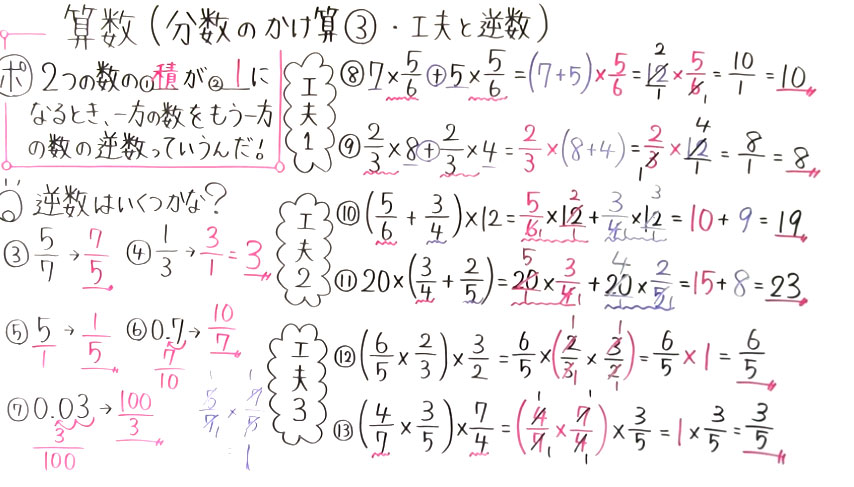 算数(分数のかけ算③・工夫と逆数)
ポ 2つの数の①積が②1に
なるとき、一方の数をもう一方
の数の逆数っていうんだ!
逆数はいくつかな?
③ 5/7 → 7/5 ④ 1/3 → 3/1 = 3
⑤ 5/1 → 1/5 ⑥ 0.7 → 10/7
7/10
⑦ 0.03 → 100/3
3/100
5/7 × 7/5
= 1
工夫1
⑧ 7×5/6+5×5/6=(7+5)×5/6=12/1×5/6=10/1=10
⑨ 2/3×8+2/3×4=2/3×(8+4)=2/3×12/1=8/1=8
工夫2
⑩ (5/6+3/4)×12=5/6×12/1+3/4×12/1=10+9=19
⑪ 20×(3/4+2/5)=20/1×3/4+20/1×2/5=15+8=23
工夫3
⑫ (6/5×2/3)×3/2=6/5×(2/3×3/2)=6/5×1=6/5
⑬ (4/7×3/5)×7/4=(4/7×7/4)×3/5=1×3/5=3/5